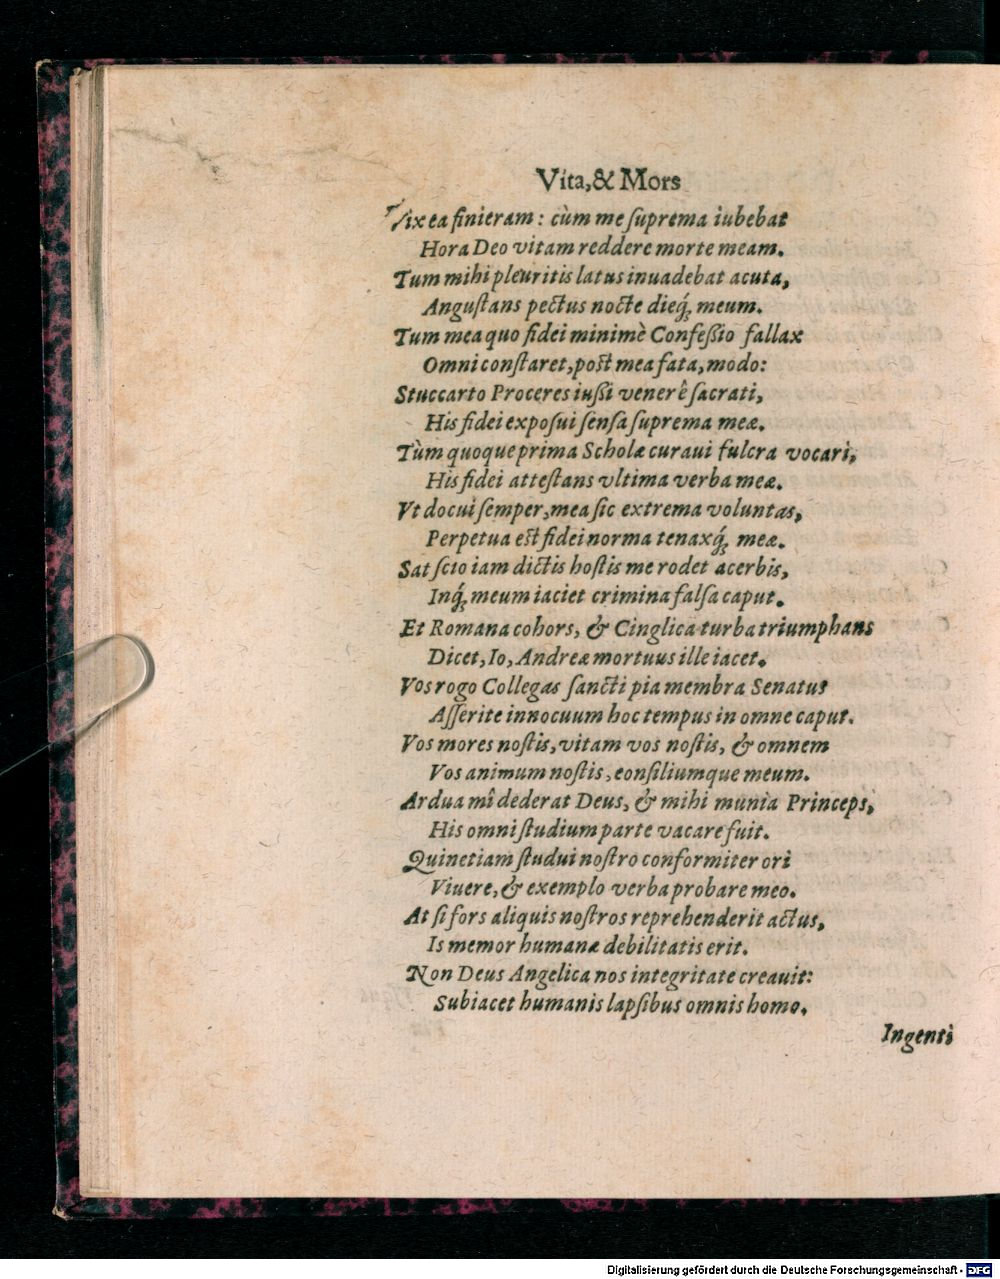 Vita,& Mors
Vix ea finieram: cùm me ſuprema iubebat
Hora Deo vitam reddere morte meam.
Tum mihi pleuritis latus inuadebat acuta,
Anguſtans pectus nocte dieq́; meum.
Tum mea quo fidei minimè Confeßio fallax
Omni conſtaret, poſt mea fata, modo:
Stuccarto Proceres iußi venerê ſacrati,
His fidei expoſui ſenſa ſuprema meæ.
Tùm quoque prima Scholæ curaui fulcra vocari,
His fidei atteſtans vltima verba meæ.
Vt docui ſemper, mea ſic extrema voluntas,
Perpetua eſt fidei norma tenaxq́; meæ.
Sat ſcio iam dictis hoſtis me rodet acerbis,
Inq́; meum iaciet crimina falſa caput.
Et Romana cohors, & Cinglica turba triumphans
Dicet, Io, Andreæ mortuus ille iacet.
Vos rogo Collegas ſancti pia membra Senatus
Aſſerite innocuum hoc tempus in omne caput.
Vos mores noſtis, vitam vos noſtis, & omnem
Vos animum noſtis, eonſiliumque meum.
Ardua mî dederat Deus, & mihi munia Princeps,
His omni ſtudium parte vacare fuit.
Quinetiam ſtudui noſtro conformiter ori
Viuere, & exemplo verba probare meo.
At ſi fors aliquis noſtros reprehenderit actus,
Is memor humanæ debilitatis erit.
Non Deus Angelica nos integritate creauit:
Subiacet humanis lapſibus omnis homo.
Ingenti
Digitalisierung gefördert durch die Deutsche Forschungsgemeinschaft - DFG